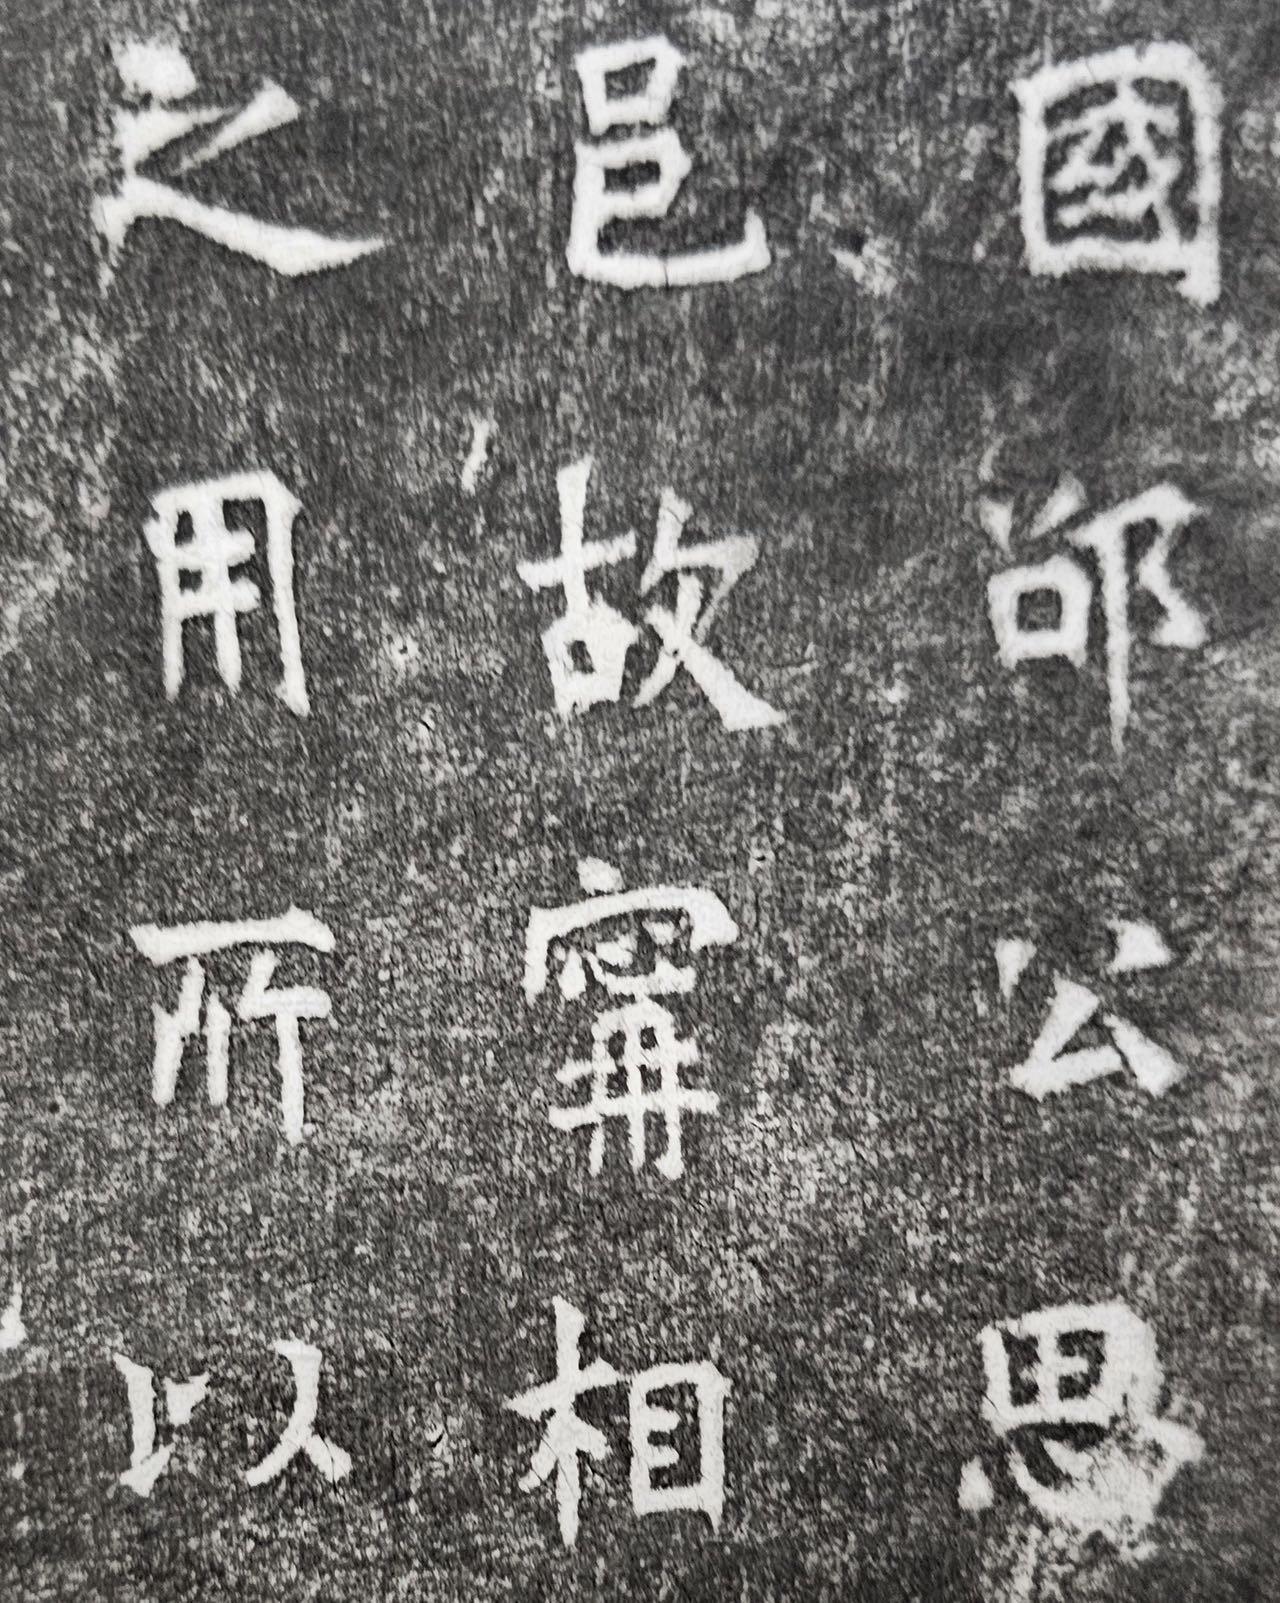 國邵公思
邑故寗相
之用所以